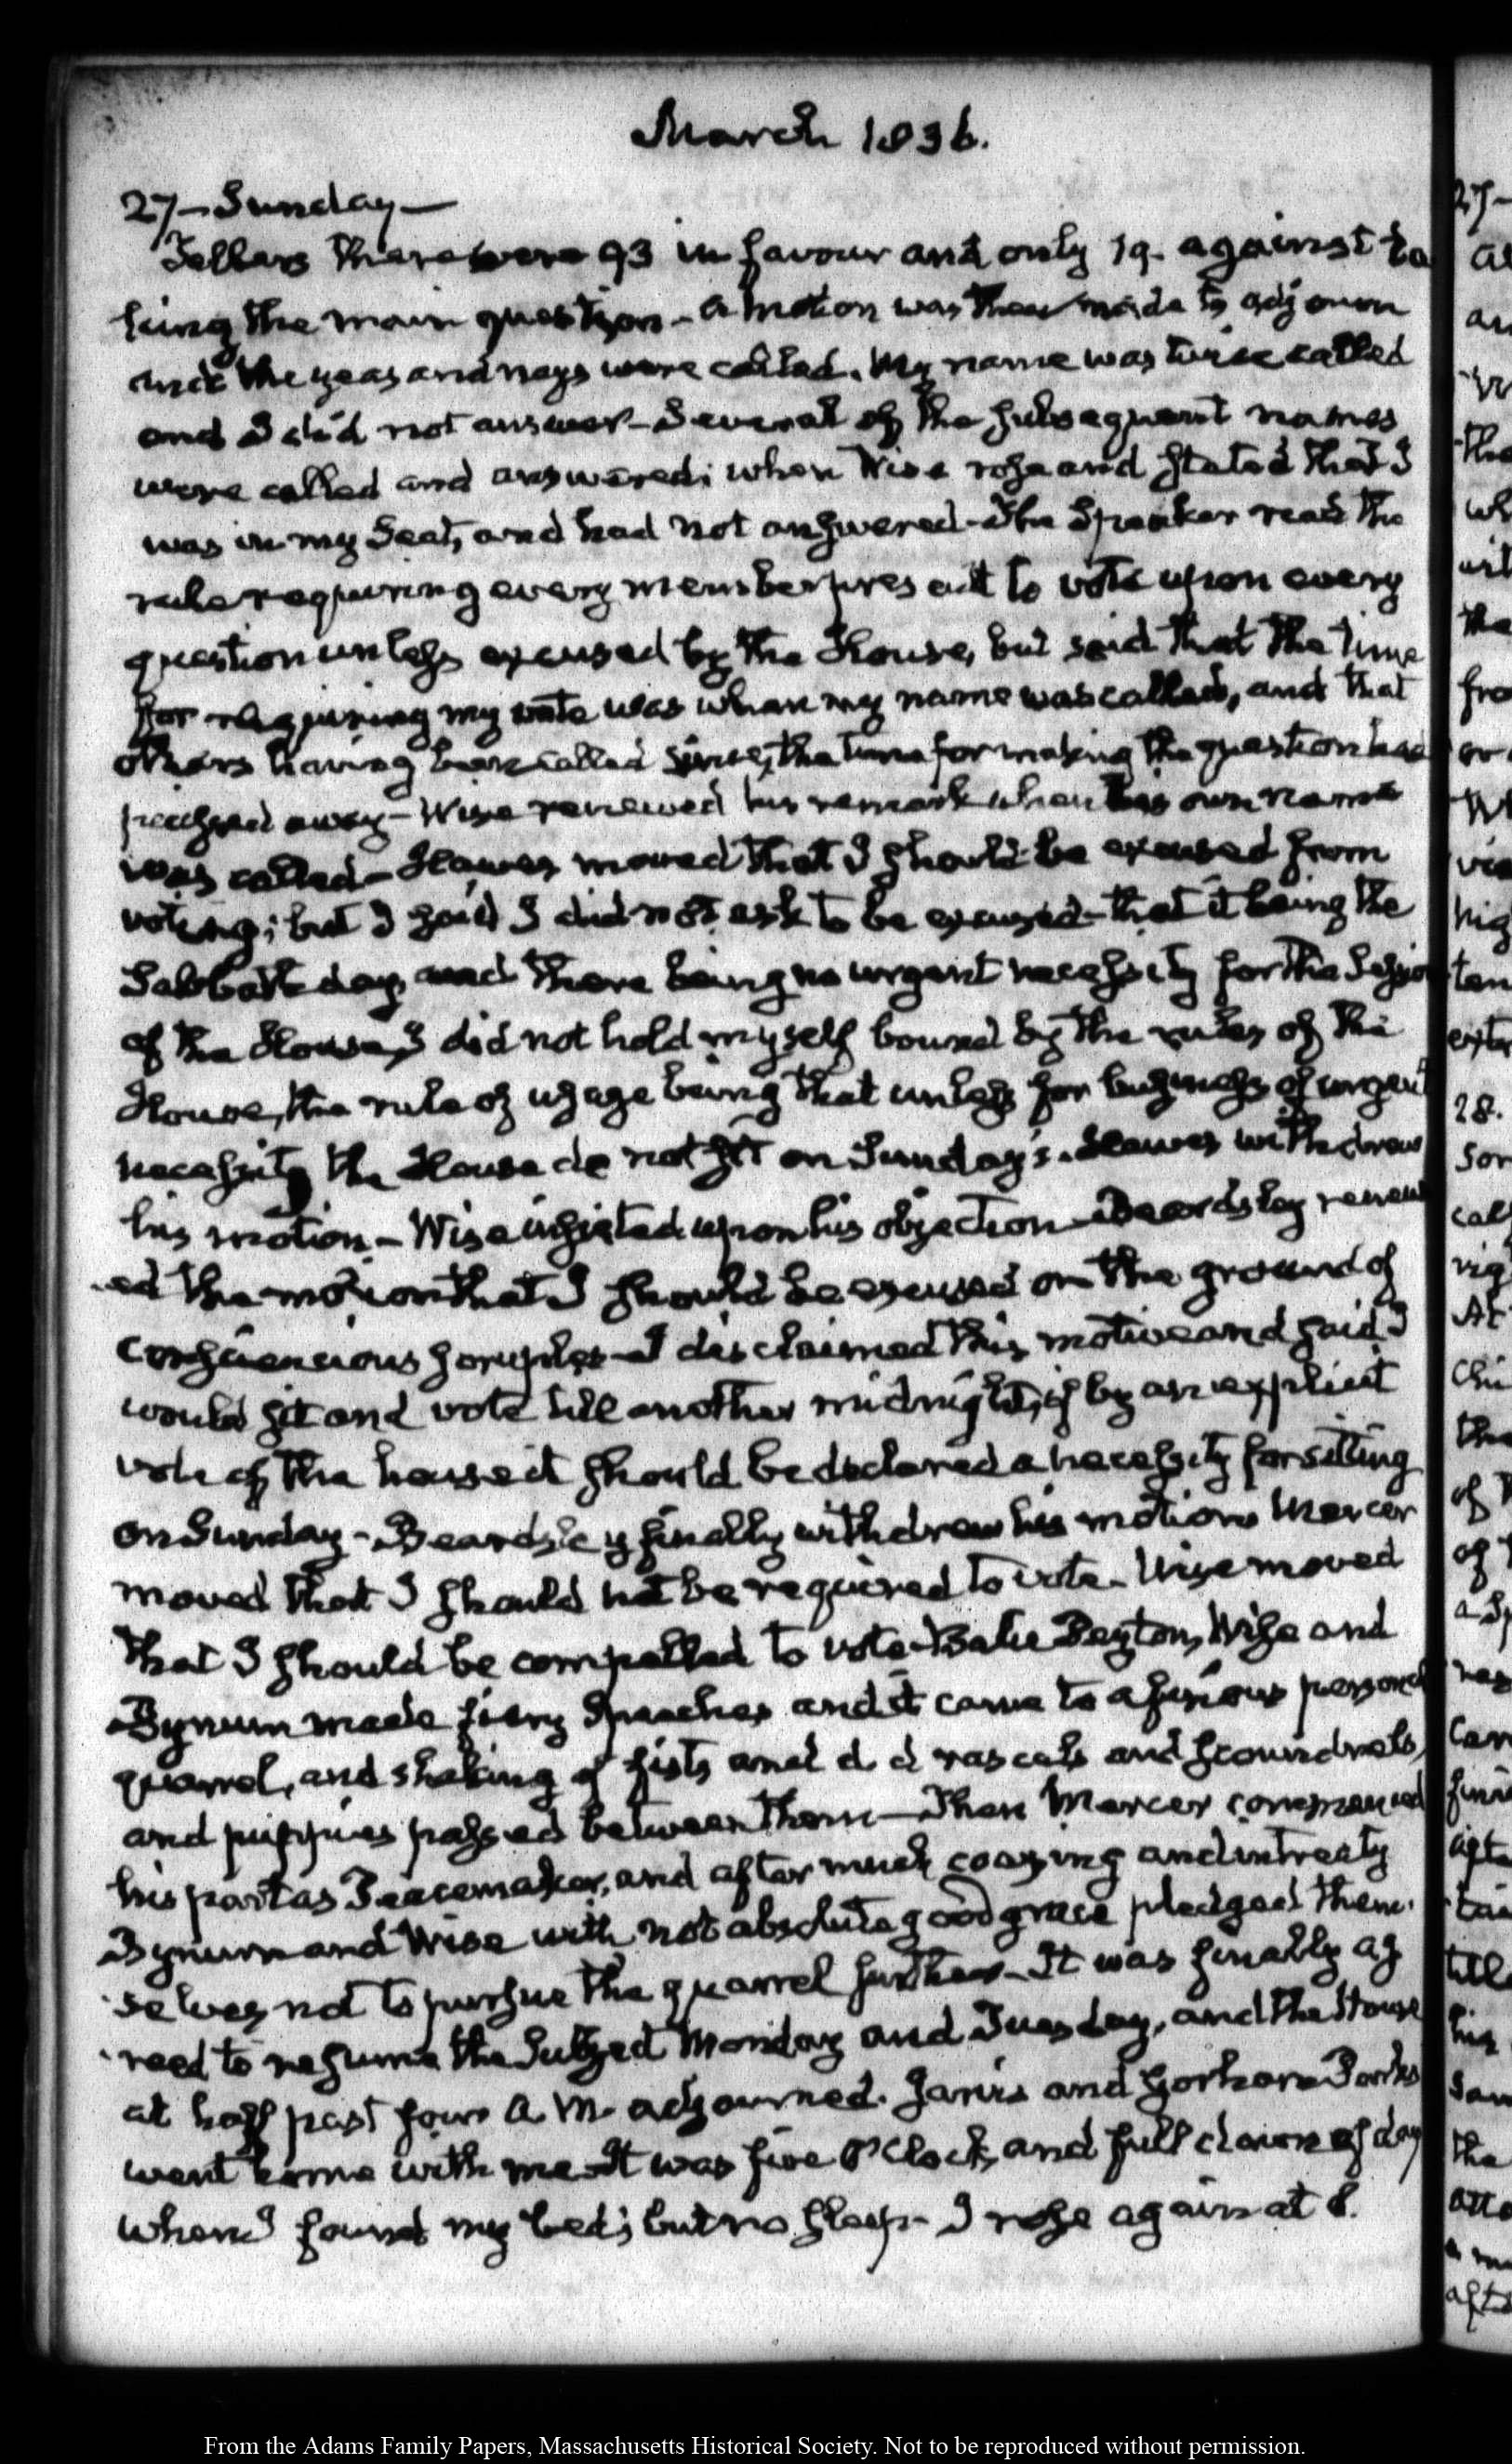 March 1836.
27 — Sunday —
Tellers there were 93 in favour and only 19. against ta
king the main question — a motion was then made to adjourn
and the yeas and nays were called. My name was twice called
and I did not answer — Several of the subsequent names
were called and answered; when Wise rose and stated that I
was in my Seat, and had not answered — The Speaker read the
rule requiring every member present to vote upon every
question unless excused by the House, but said that the time
for requiring my vote was when my name was called, and that
others having been called since, the time for making the question had
passed away — Wise renewed his remark when his own name
was called — Hawes moved that I should be excused from
voting; but I said I did not ask to be excused — that it being the
Sabbath day, and there being no urgent necessity for the Session
of the House, I did not hold myself bound by the rules of the
House, the rule of usage being that unless for business of urgent
necessity the House do not sit on Sunday's. Hawes withdrew
his motion — Wise insisted upon his objection — Beardsley renew
ed the motion that I should be excused on the ground of
consciencious scruples — I disclaimed this motive and said I
would sit and vote till another midnight, if by an explicit
vote of the house it should be declared a necessity for sitting
on Sunday — Beardsley finally withdrew his motion Mercer
moved that I should not be required to vote — Wise moved
that I should be compelled to vote — Balie Peyton, Wise and
Bynum made fiery Speeches and it came to a furious personal
quarrel, and shaking of fists and d d rascals and scoundrels,
and puppies passed between them — Then Mercer commenced
his part as Peacemaker, and after much coaxing and intreaty
Bynum and Wise with not absolute good grace pledged them-
selves not to pursue the quarrel further — It was finally ag
reed to resume the Subject Monday and Tuesday, and the House
at half past four A.M. adjourned. Jarvis and Gorham Parks
went home with me — It was five O'Clock, and full dawn of day
when I found my bed; but no sleep — I rose again at 8.
27-
28.
From the Adams Family Papers, Massachusetts Historical Society. Not to be reproduced without permission.